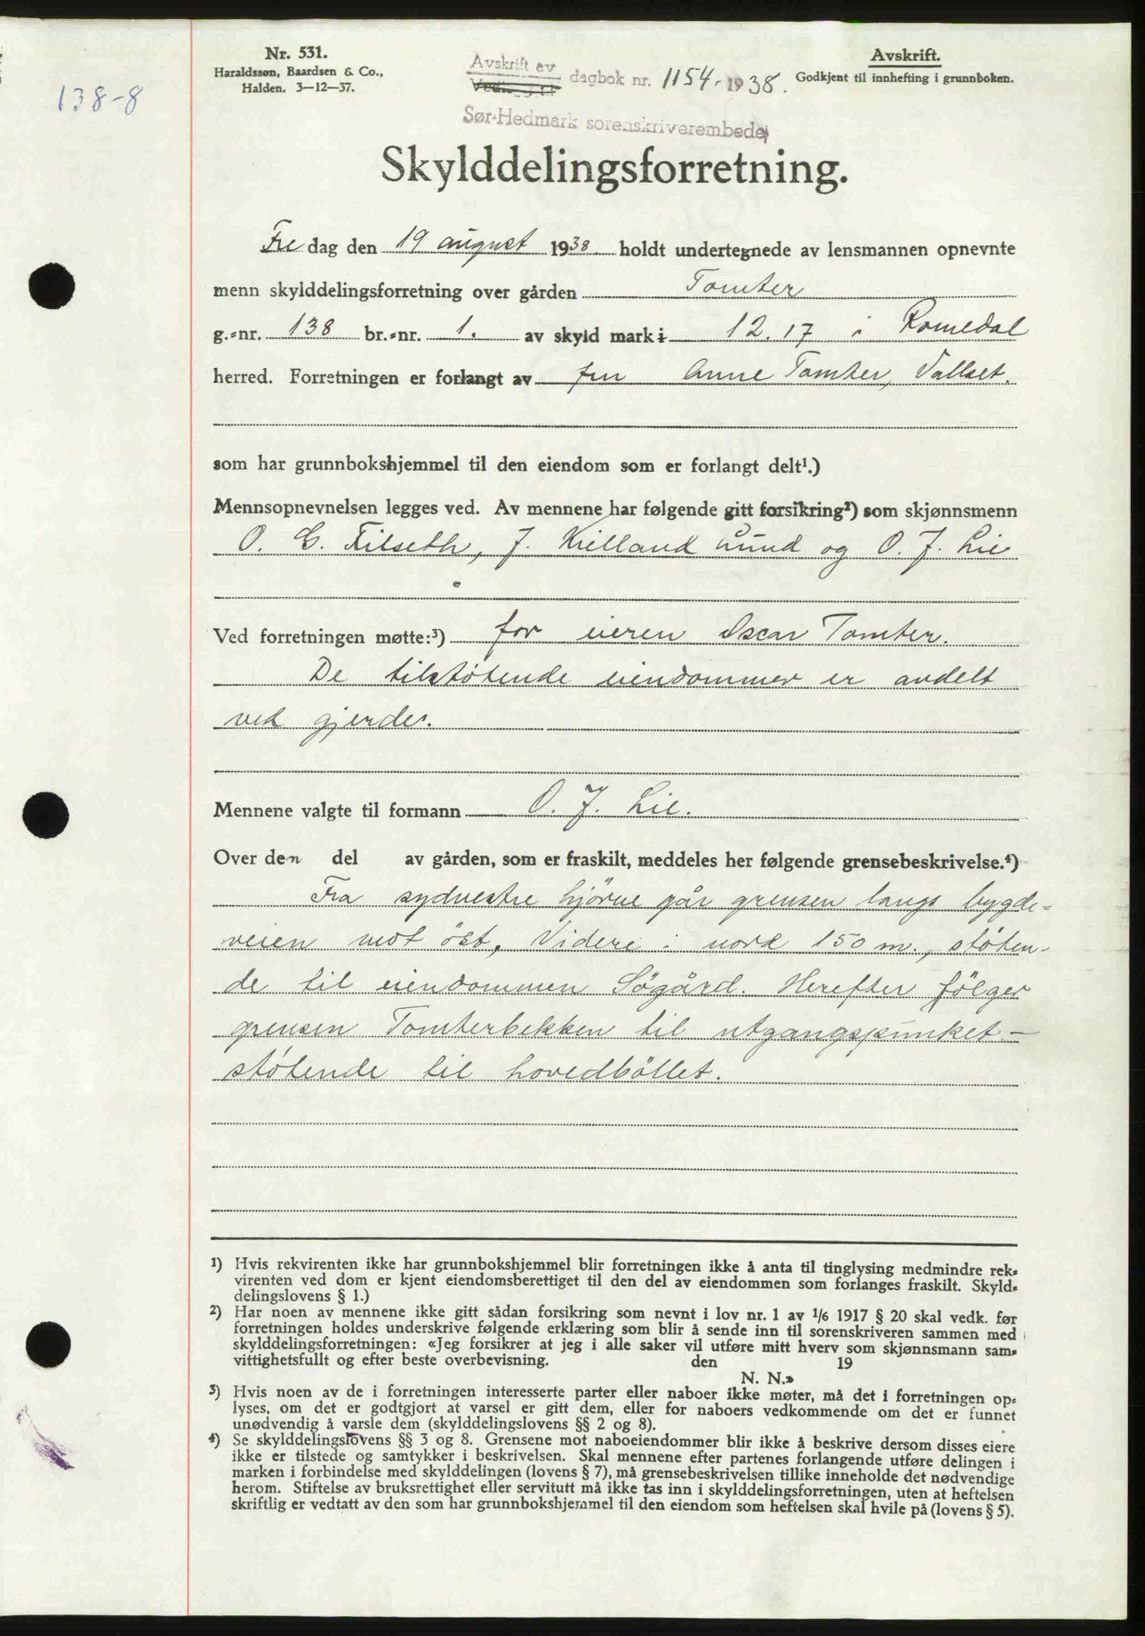 138-8
Nr. 531.
Haraldssøn, Baardsen & Co.,
Halden. 3—12—37.
Avskrift av
dagbok nr. 1154-1938.
Sør-Hedmark sorenskriverembede
Avskrift.
Godkjent til innhefting i grunnboken.
Skylddelingsforretning.
Fre dag den 19 august 1938 holdt undertegnede av lensmannen opnevnte
menn skylddelingsforretning over gården Tomter
g.-nr. 138 br.-nr. 1. av skyld mark i 12.17 i Romedal
herred. Forretningen er forlangt av fru Anne Tomter, Vallset.
som har grunnbokshjemmel til den eiendom som er forlangt delt¹.)
Mennsopnevnelsen legges ved. Av mennene har følgende gitt forsikring²) som skjønnsmenn
O. C. Filseth, J. Kielland Lund og O. J. Lie
Ved forretningen møtte:³) for eieren Oscar Tomter.
De tilstøtende eiendommer er avdelt
ved gjerder.
Mennene valgte til formann O. J. Lie.
Over den del av gården, som er fraskilt, meddeles her følgende grensebeskrivelse.⁴)
Fra sydvestre hjörne går grensen langs bygde-
veien mot öst, Videre i nord 150 m., støten-
de til eiendommen Sögård. Herefter fölger
grensen Tomterbekken til utgangspunktet -
støtende til hovedböllet.
¹) Hvis rekvirenten ikke har grunnbokshjemmel blir forretningen ikke å anta til tinglysing medmindre rek-
virenten ved dom er kjent eiendomsberettiget til den del av eiendommen som forlanges fraskilt. Skyld-
delingslovens § 1.)
²) Har noen av mennene ikke gitt sådan forsikring som nevnt i lov nr. 1 av 1/6 1917 § 20 skal vedk. før
forretningen holdes underskrive følgende erklæring som blir å sende inn til sorenskriveren sammen med
skylddelingsforretningen: «Jeg forsikrer at jeg i alle saker vil utføre mitt hverv som skjønnsmann sam-
vittighetsfullt og efter beste overbevisning. den 19
N. N.»
³) Hvis noen av de i forretningen interesserte parter eller naboer ikke møter, må det i forretningen op-
lyses, om det er godtgjort at varsel er gitt dem, eller for naboers vedkommende om det er funnet
unødvendig å varsle dem (skylddelingslovens §§ 2 og 8).
⁴) Se skylddelingslovens §§ 3 og 8. Grensene mot naboeiendommer blir ikke å beskrive dersom disses eiere
ikke er tilstede og samtykker i beskrivelsen. Skal mennene efter partenes forlangende utføre delingen i
marken i forbindelse med skylddelingen (lovens § 7), må grensebeskrivelsen tillike inneholde det nødvendige
herom. Stiftelse av bruksrettighet eller servitutt må ikke tas inn i skylddelingsforretningen, uten at heftelsen
skriftlig er vedtatt av den som har grunnbokshjemmel til den eiendom som heftelsen skal hvile på (lovens § 5).